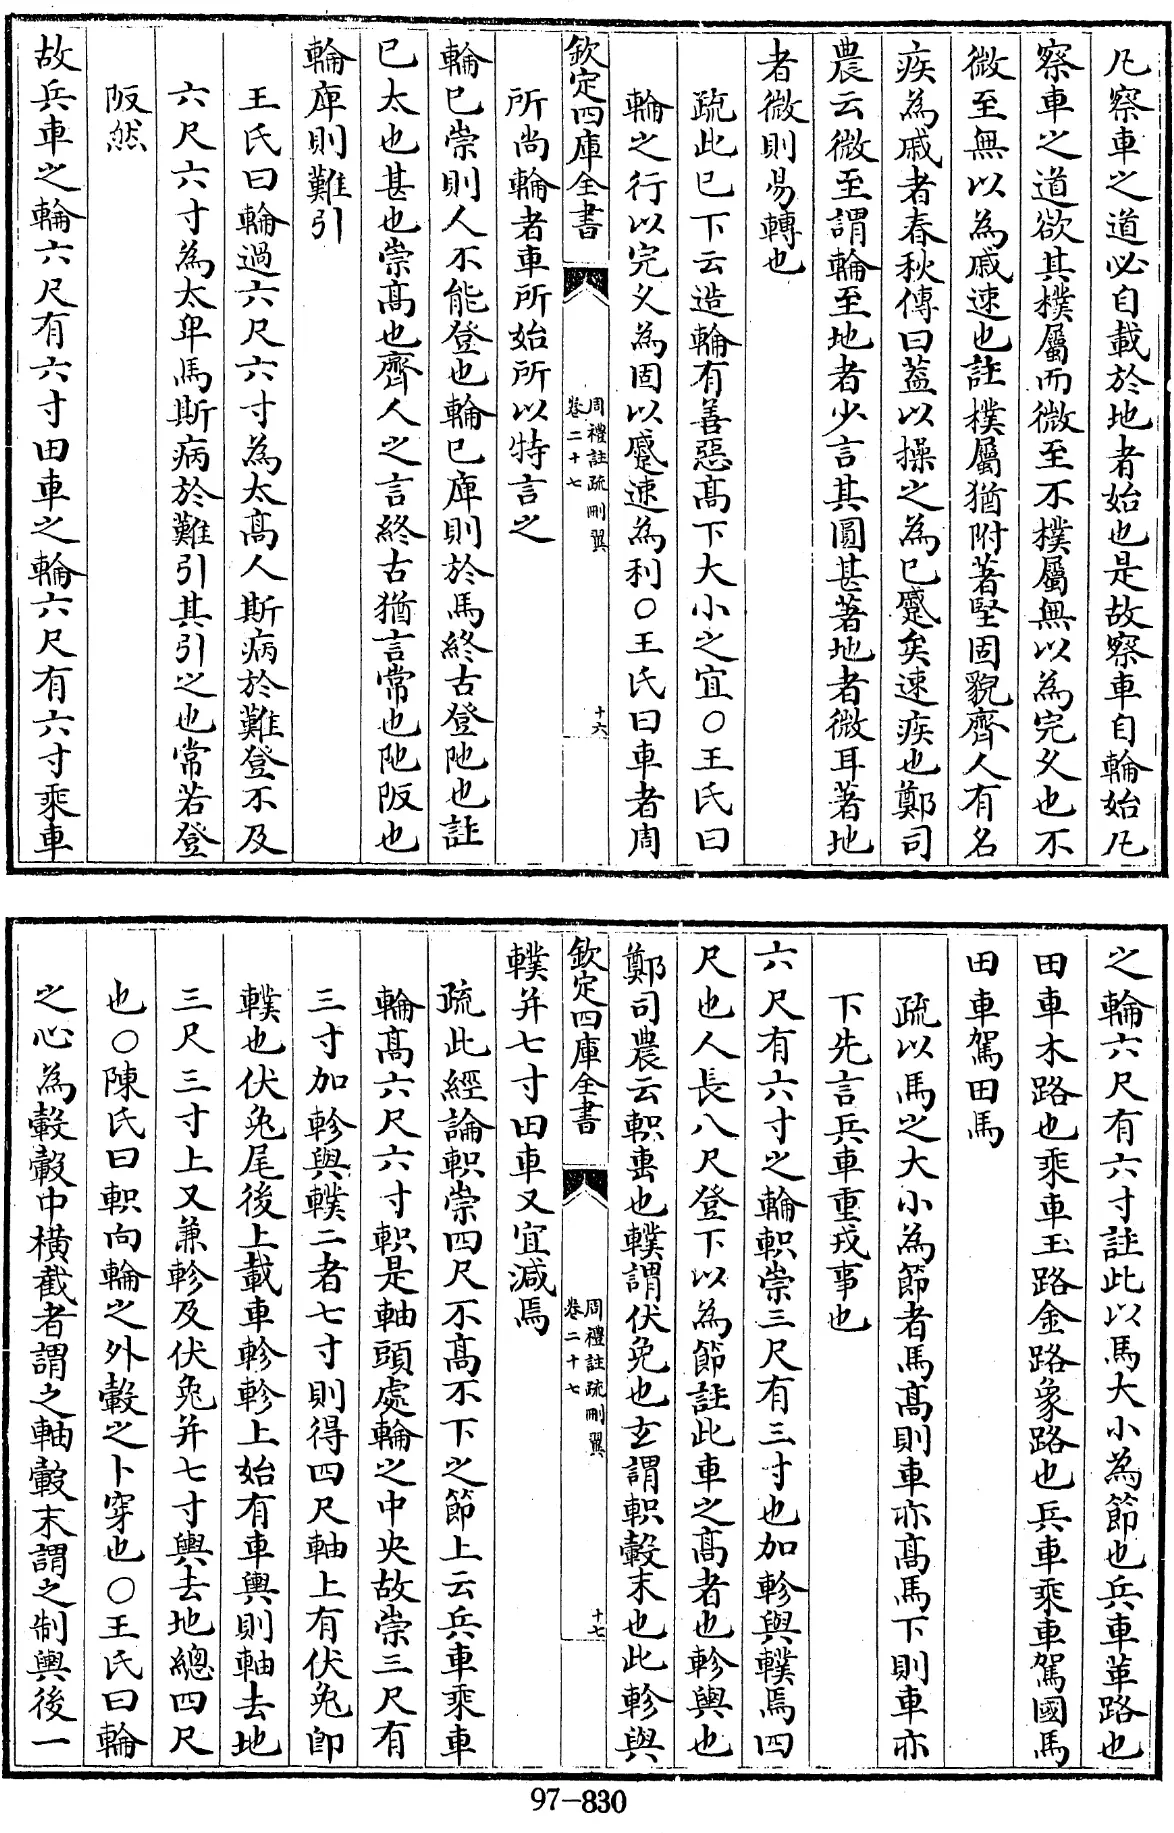 凡察車之道必自載於地者始也是故察車自輪始凡
察車之道欲其樸屬而微至不樸屬無以為完久也不
微至無以為戚速也註樸屬猶附著堅固貌齊人有名
疾為戚者春秋傳曰葢以操之為已蹙矣速疾也鄭司
農云微至謂輪至地者少言其圓甚著地者微耳著地
者微則易轉也
疏此已下云造輪有善惡髙下大小之宜○王氏曰
輪之行以完久為固以蹙速為利○王氏曰車者周
欽定四庫全書
周禮註疏刪翼
卷二十七
十六
所尚輪者車所始所以特言之
輪已崇則人不能登也輪已庳則於馬終古登阤也註
已太也甚也崇髙也齊人之言終古猶言常也阤阪也
輪庳則難引
王氏曰輪過六尺六寸為太髙人斯病於難登不及
六尺六寸為太卑馬斯病於難引其引之也常若登
阪然
故兵車之輪六尺有六寸田車之輪六尺有六寸乘車
之輪六尺有六寸註此以馬大小為節也兵車革路也
田車木路也乘車玉路金路象路也兵車乘車駕國馬
田車駕田馬
疏以馬之大小為節者馬髙則車亦髙馬下則車亦
下先言兵車重戎事也
六尺有六寸之輪軹崇三尺有三寸也加軫與轐焉四
尺也人長八尺登下以為節註此車之髙者也軫輿也
鄭司農云軹軎也轐謂伏兔也玄謂軹轂末也此軫與
欽定四庫全書
周禮註疏刪翼
卷二十七
十七
轐并七寸田車又宜減焉
疏此經論軹崇四尺不髙不下之節上云兵車乘車
輪髙六尺六寸軹是軸頭處輪之中央故崇三尺有
三寸加軫與轐二者七寸則得四尺軸上有伏兔即
轐也伏兔尾後上載車軫軫上始有車輿則軸去地
三尺三寸上又兼軫及伏兔并七寸輿去地總四尺
也○陳氏曰軹向輪之外轂之卜穿也○王氏曰輪
之心為轂轂中横截者謂之軸轂末謂之制輿後一
97-830